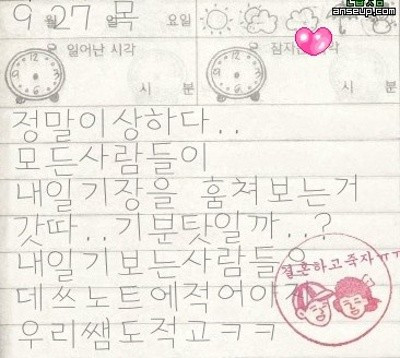 9월 27일 목요일
anseup.com
일어난 시각
시 분
시 분
정말이상하다..
모든사람들이
내일기장을 훔쳐보는거
갓따..기분탓일까..?
내일기보는사람들은
데쓰노트에적어야지
우리쌤도적고ㅋㅋ
결혼하고죽자ㅠㅠ